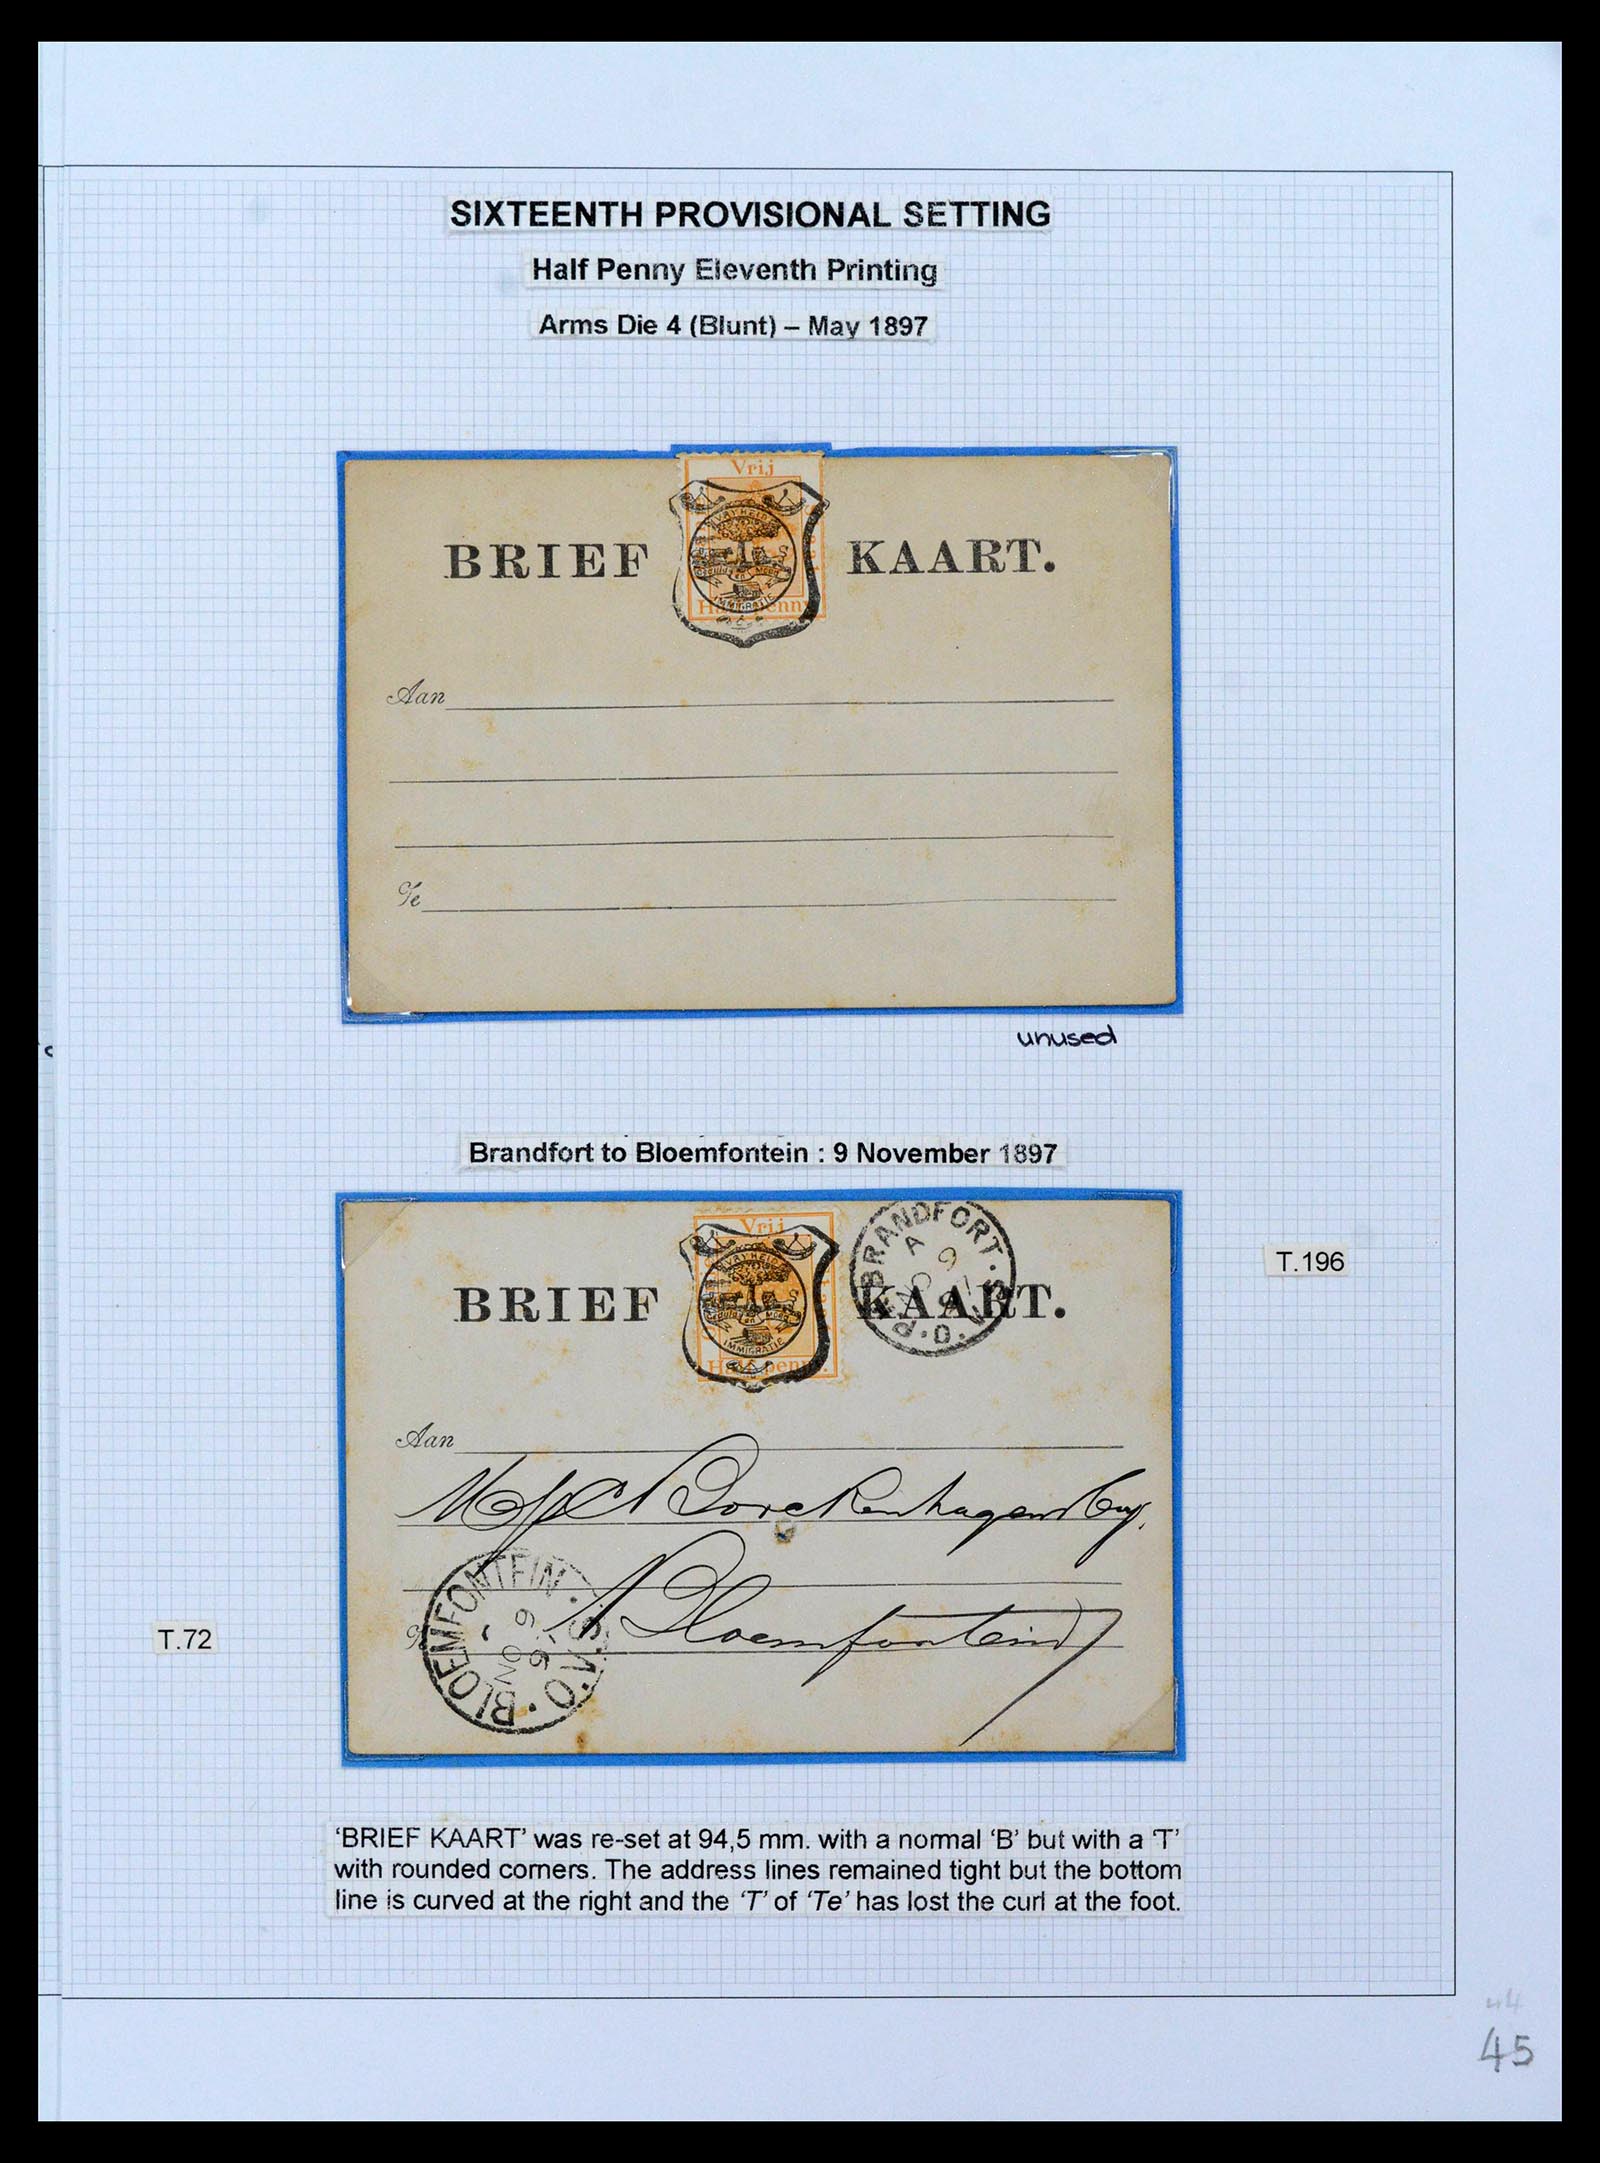 SIXTEENTH PROVISIONAL SETTING
Half Penny Eleventh Printing
Arms Die 4 (Blunt) – May 1897
Vrij
BRIEF KAART.
VRYHEID
Geduld en Moed
IMMIGRATIE
Half penny
Aan
Te
unused
Brandfort to Bloemfontein : 9 November 1897
Vrij
BRANDFORT. O.V.S.
A
9
NO
97
BRIEF KAART.
VRYHEID
Geduld en Moed
IMMIGRATIE
Half penny.
T.196
Aan
Borckenhagen & Coy.
Bloemfontein
BLOEMFONTEIN. O.V.S.
NO 9
97
T.72
‘BRIEF KAART’ was re-set at 94,5 mm. with a normal ‘B’ but with a ‘T’
with rounded corners. The address lines remained tight but the bottom
line is curved at the right and the ‘T’ of ‘Te’ has lost the curl at the foot.
44
45